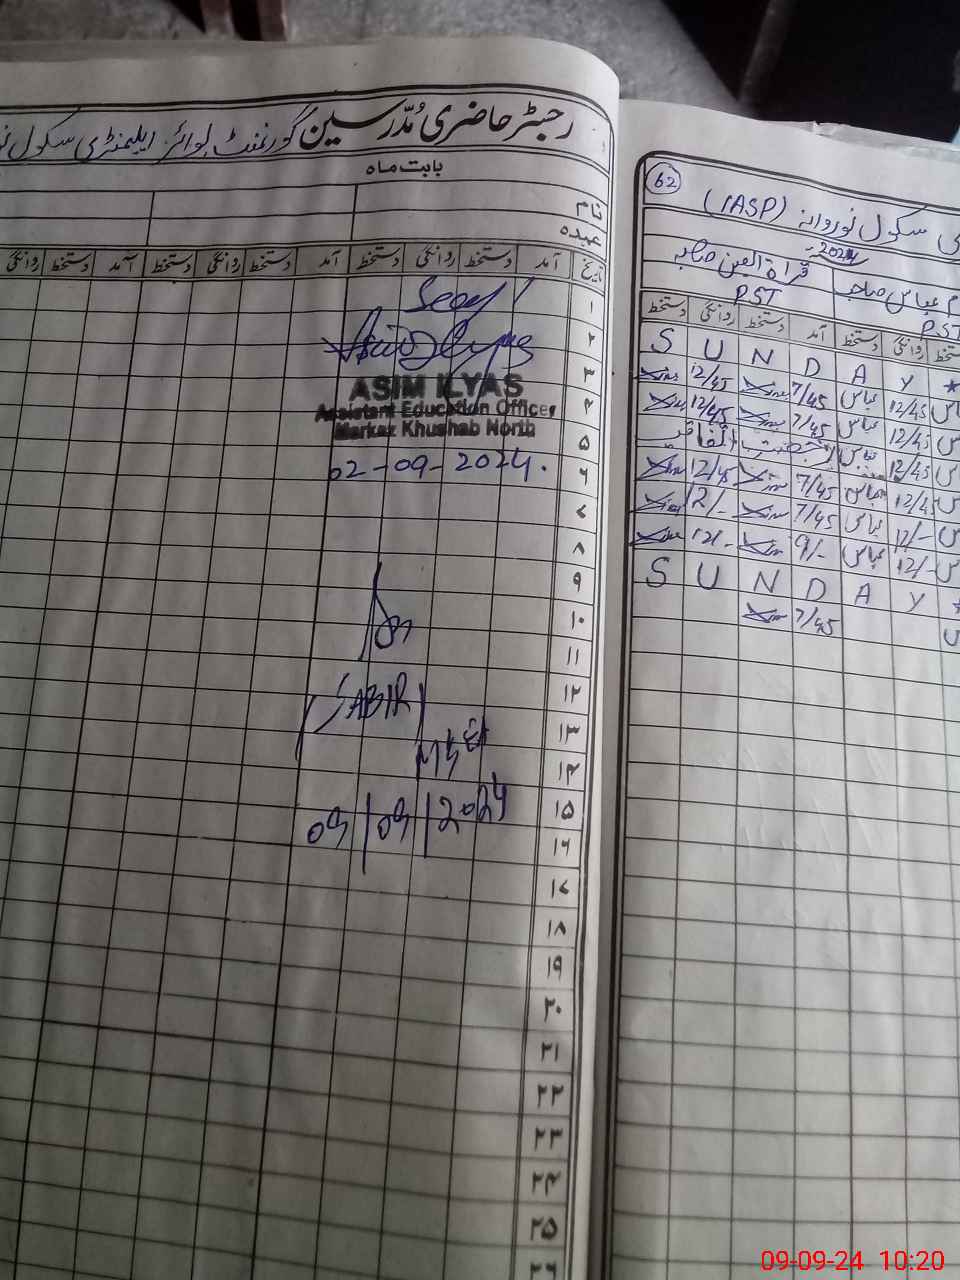 رجسٹر حاضری مُدّرسین گورنمنٹ بوائز ایلیمنٹری سکول
بابت ماہ
نام
عہدہ
تاریخ آمد دستخط روانگی دستخط آمد دستخط روانگی دستخط آمد دستخط روانگی
۱
Seen
۲
۳
ASIM ILYAS
۴
Assistant Education Officer
Markaz Khushab North
۵
02-09-2024.
۶
۷
۸
۹
۱۰
۱۱
۱۲
(SABIR)
۱۳
۱۴
09/09/2024
۱۵
۱۶
۱۷
۱۸
۱۹
۲۰
۲۱
۲۲
۲۳
۲۴
۲۵
۲۶
62
سکول نوروانہ (IASP)
2024
عباس صاحب قراۃ العین صاحبہ
PST PST
دستخط روانگی دستخط آمد دستخط روانگی دستخط
S U N D A Y *
12/45 7/45 عباس 12/45
12/45 7/45 عباس 12/45
عباس 12/45
12/45 7/45 عباس 12/45
12/- 7/45 عباس 12/-
12/- 9/- عباس 12/-
S U N D A Y *
7/45
09-09-24 10:20